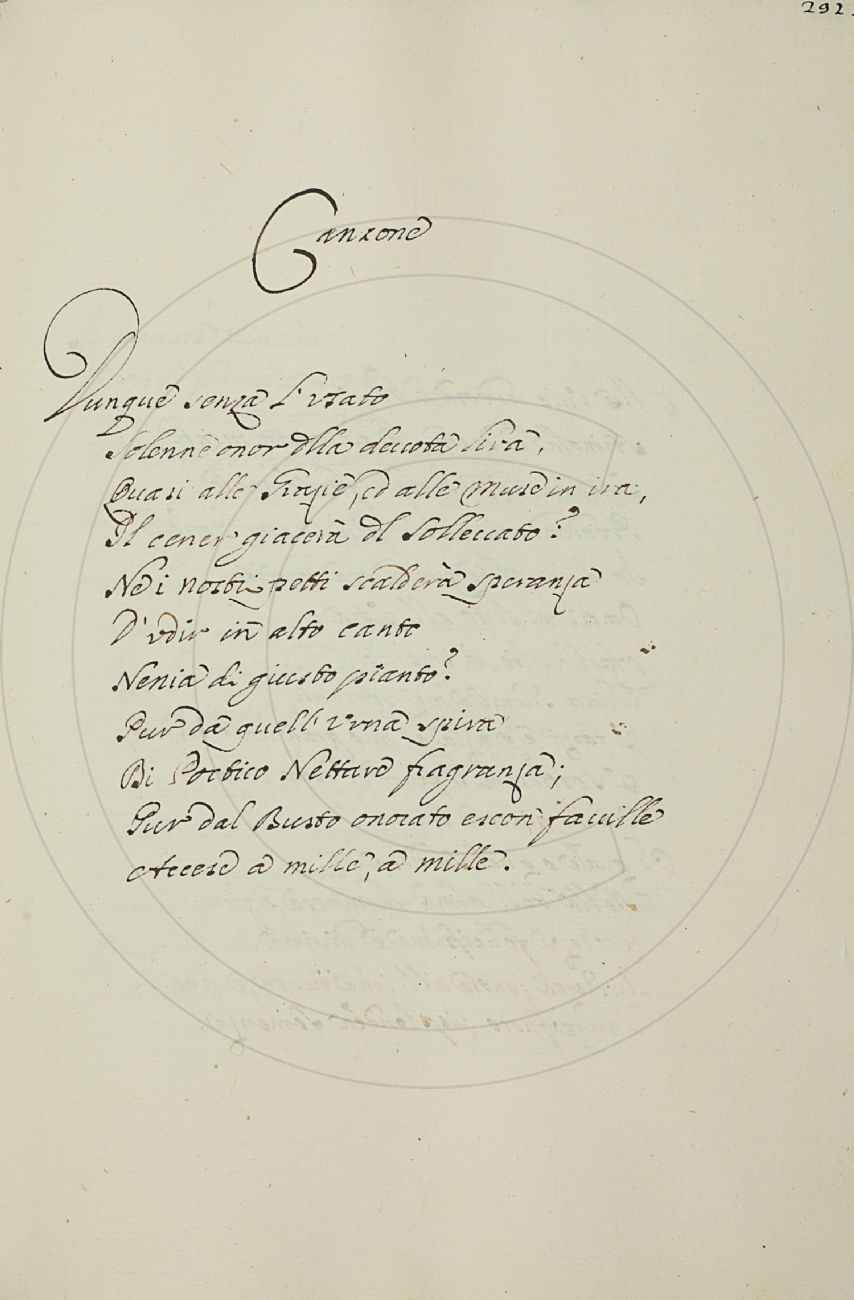 292.
Canzone
Dunque senza l'usato
Solenne onor della devota lira,
Quasi alle Grazie, ed alle Muse in ira,
Il cener giacerà del Solleccato?
Ne i nostri petti scalderà speranza
D'udir in alto canto
Nenia di giusto pianto?
Pur da quell'urna spira
Di Poetico Nettare fragranza;
Pur dal Busto onorato escon faville
Accese a mille, a mille.